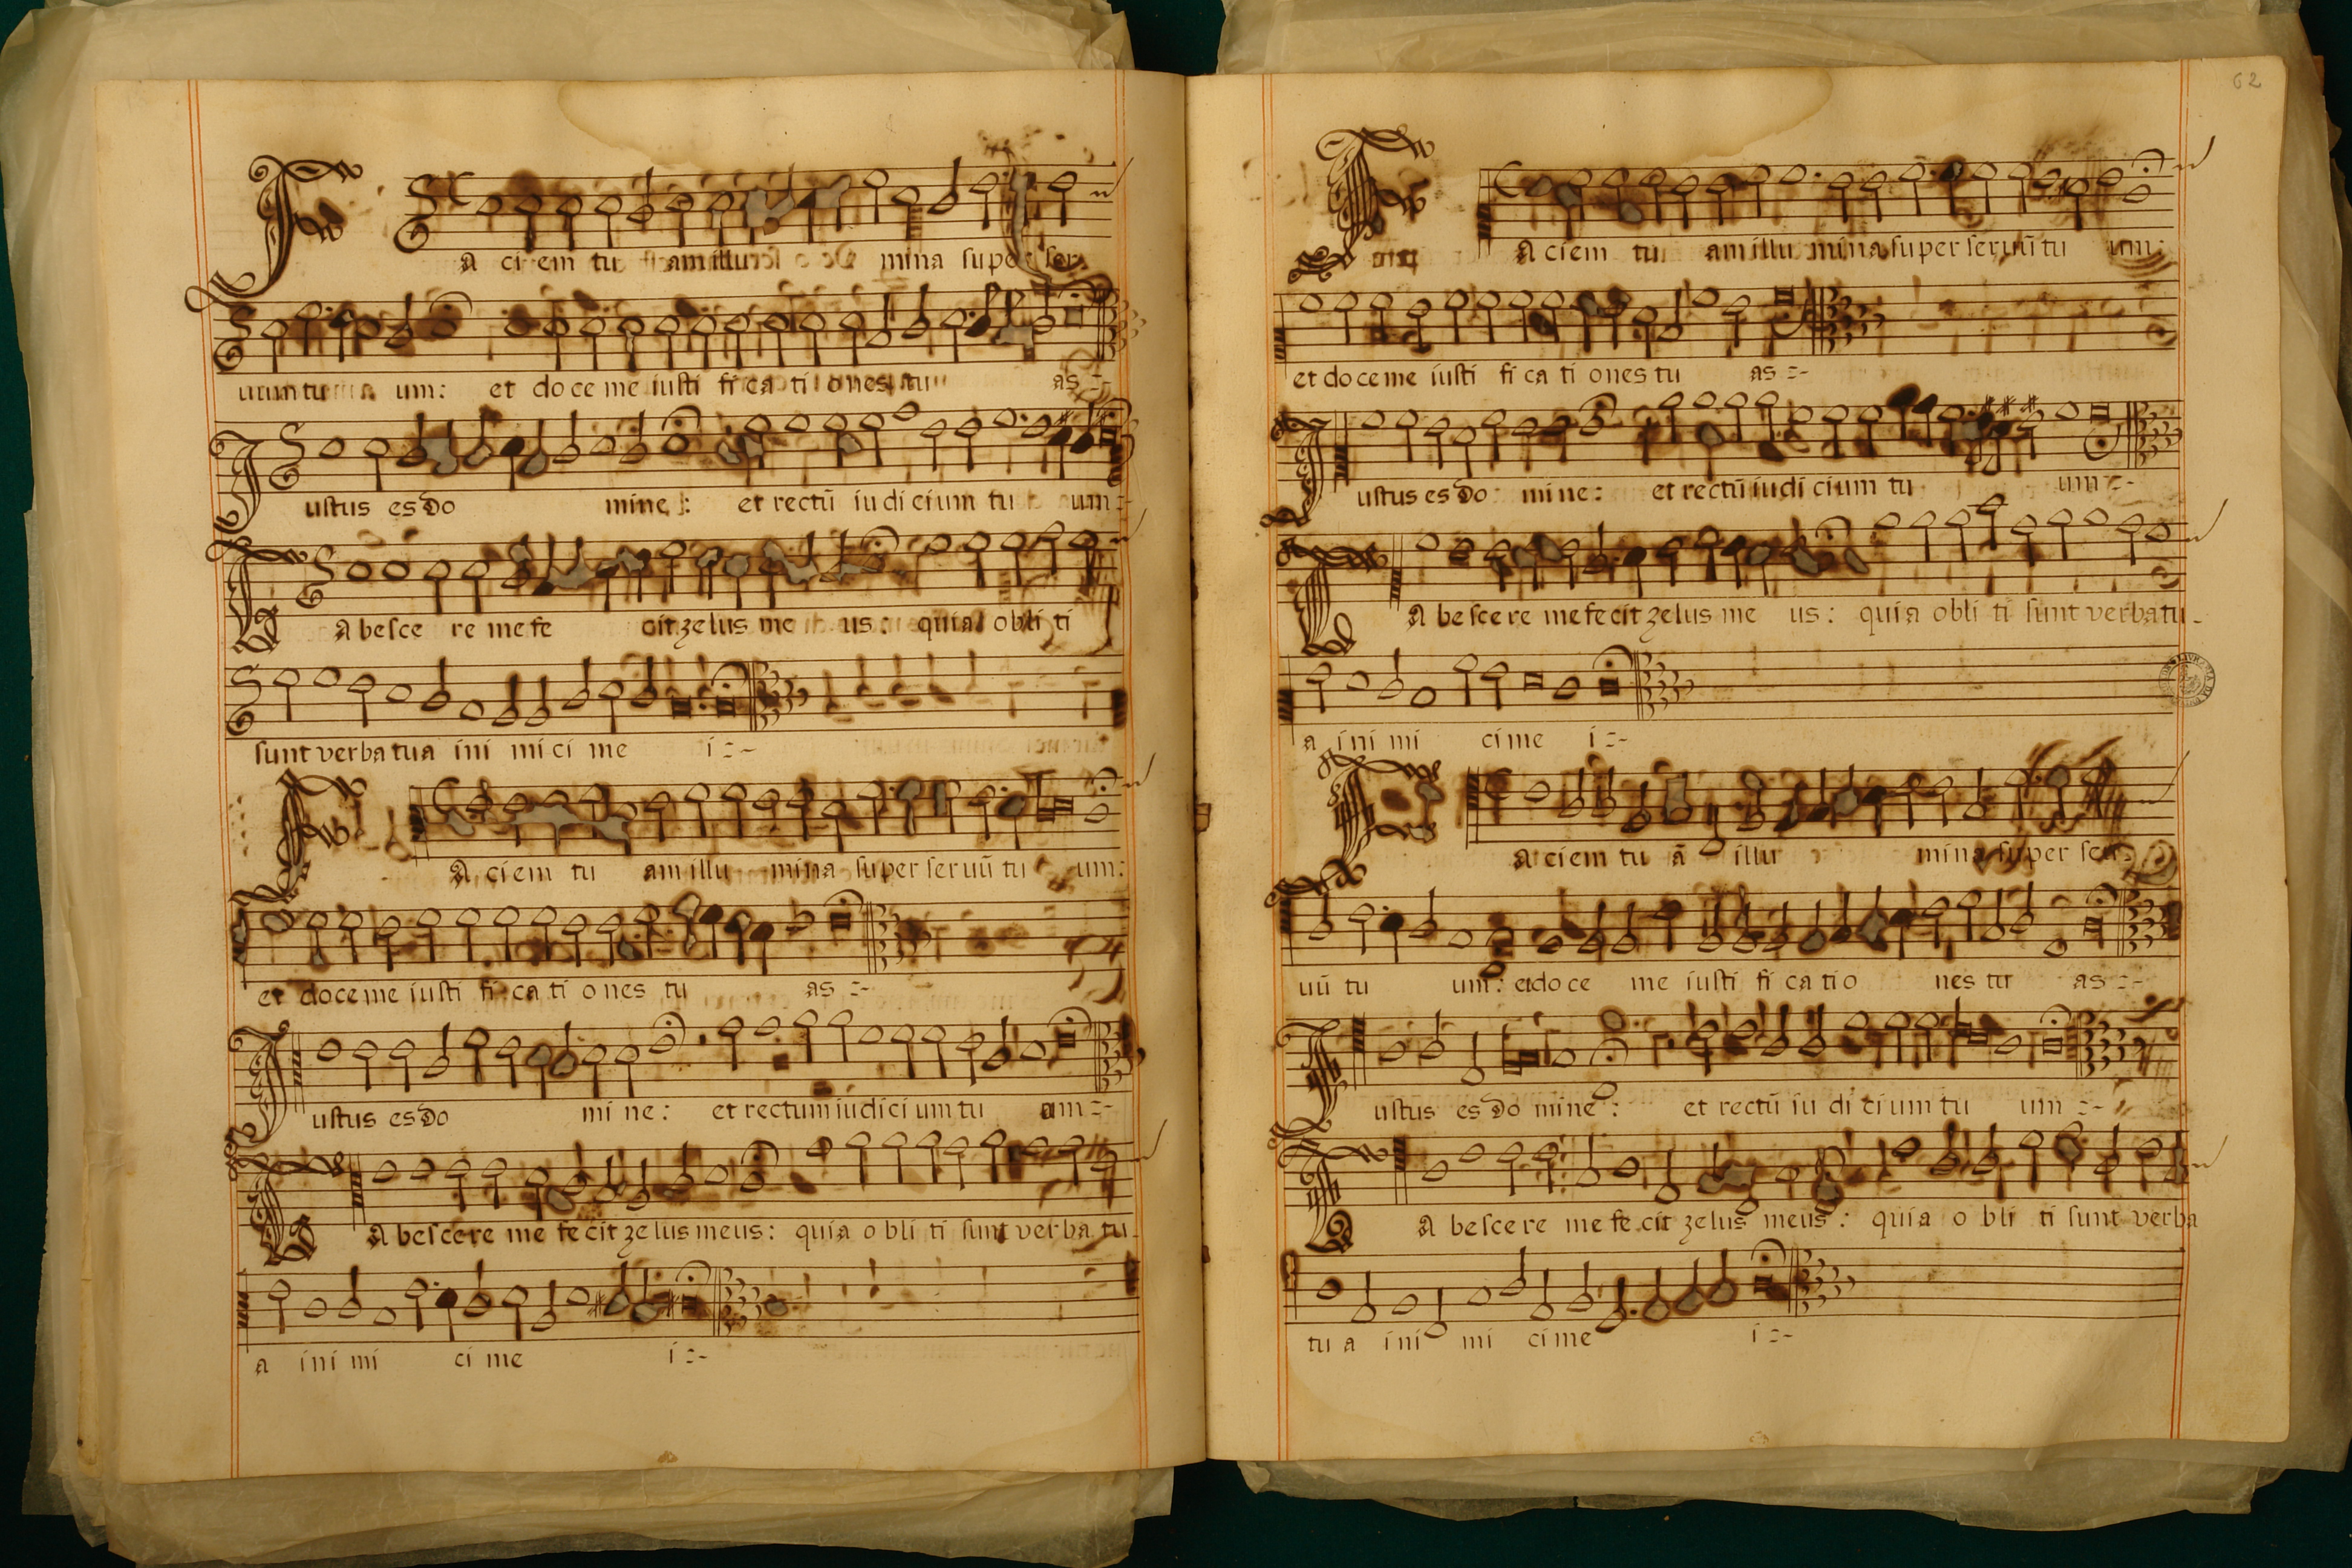 F A ci em tu am illu mina super ser
uum tu um: et do ce me iusti fi ca ti ones tu as
I ustus es do mine: et rectū iu di cium tu um
T A besce re me fe cit zelus me us: quia obli ti
sunt verba tua ini mi ci me i
F A ciem tu am illu mina super seruū tu um:
et doce me iusti fi ca ti o nes tu as
I ustus es do mi ne: et rectum iudici um tu um
T A bescere me fecit zelus meus: quia o bli ti sunt verba tu
a ini mi ci me i
62
F A ciem tu am illu mina super seruū tu um:
et do ce me iusti fi ca ti ones tu as
I ustus es do mine: et rectū iudi cium tu um
T A bescere me fecit zelus me us: quia obli ti sunt verba tu
a ini mi ci me i
F A ciem tu ā illu mina super ser
uū tu um: et doce me iusti fi ca tio nes tu as
I ustus es do mine: et rectū iu di ci um tu um
T A bescere me fe cit zelus meus: quia o bli ti sunt verba
tu a ini mi ci me i